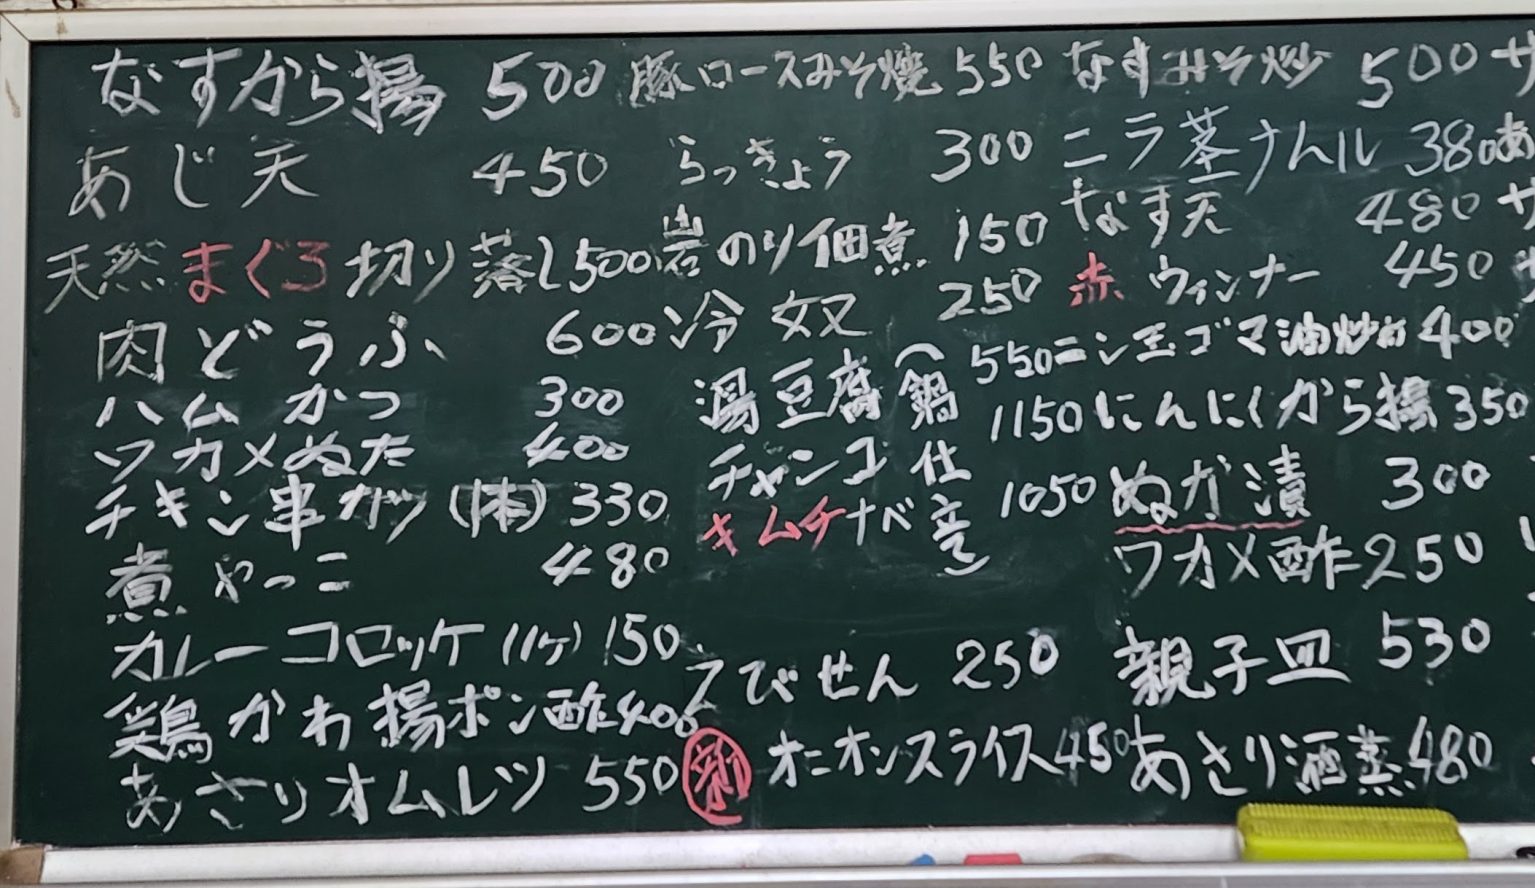 なすから揚 500
あじ天 450
天然まぐろ切り落し500
肉どうふ 600
ハムかつ 300
ワカメぬた 400
チキン串カツ(1本) 330
煮やっこ 480
カレーコロッケ(1ケ) 150
鶏かわ揚ポン酢400
あさりオムレツ 550
豚ロースみそ焼 550
らっきょう 300
岩のり佃煮 150
冷奴 250
湯豆腐 550
チャンコ 1150
キムチナベ 1050
(鍋仕立)
えびせん 250
オニオンスライス450
なすみそ炒 500
ニラ茎ナムル 380
なす天 480
赤ウィンナー 450
ニン玉ゴマ油炒め 400
にんにくから揚 350
ぬか漬 300
ワカメ酢 250
親子皿 530
あさり酒蒸 480
サ
あ
サ